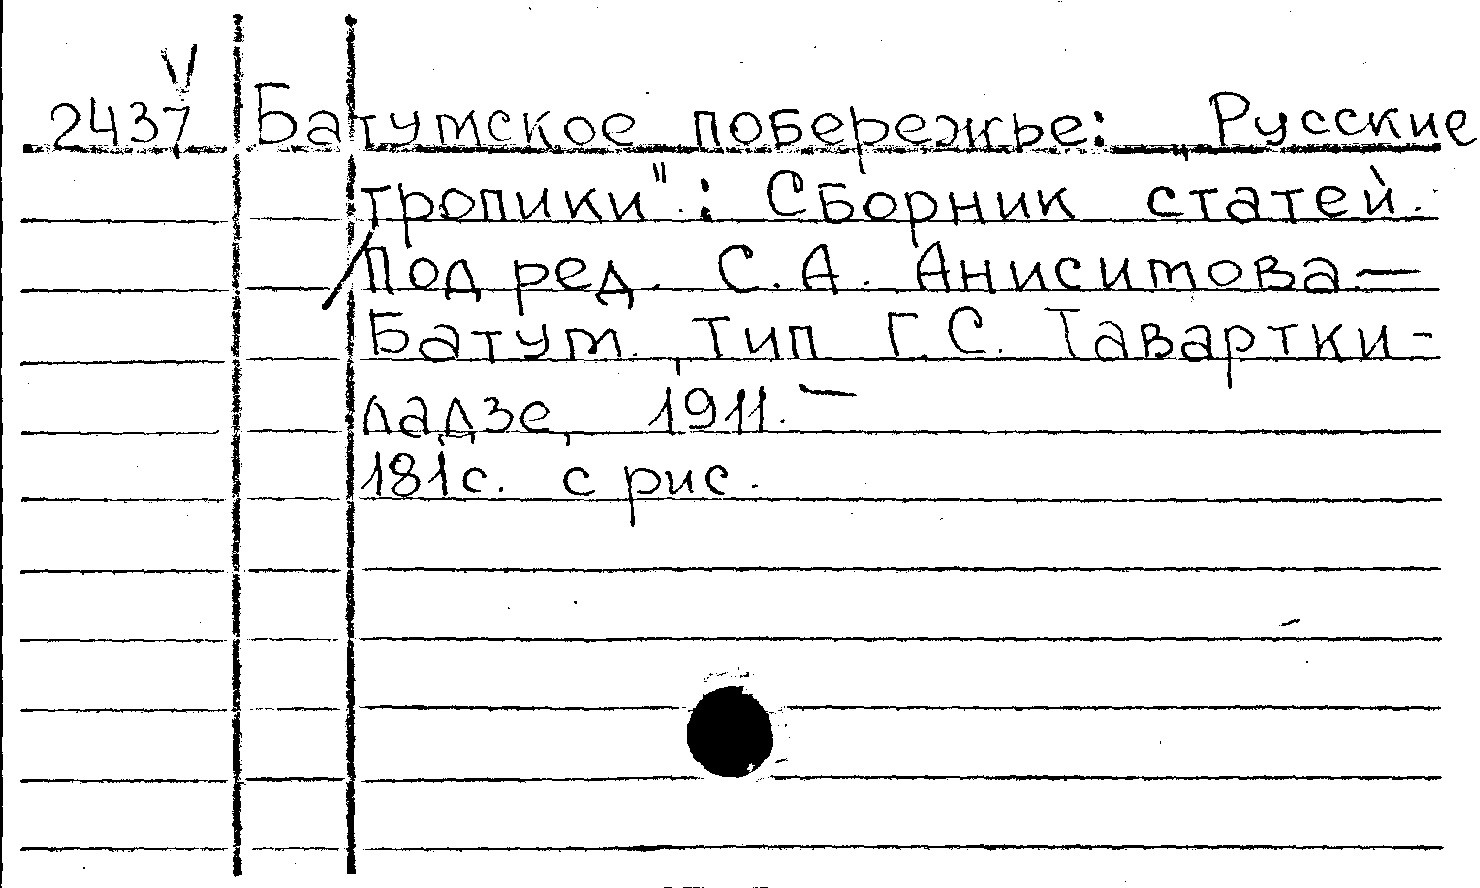 V
2437 Батумское побережье: „Русские
тропики": Сборник статей.
Под ред. С.А. Анисимова.—
Батум, тип Г.С. Таваркти-
ладзе, 1911.—
181с. с рис.